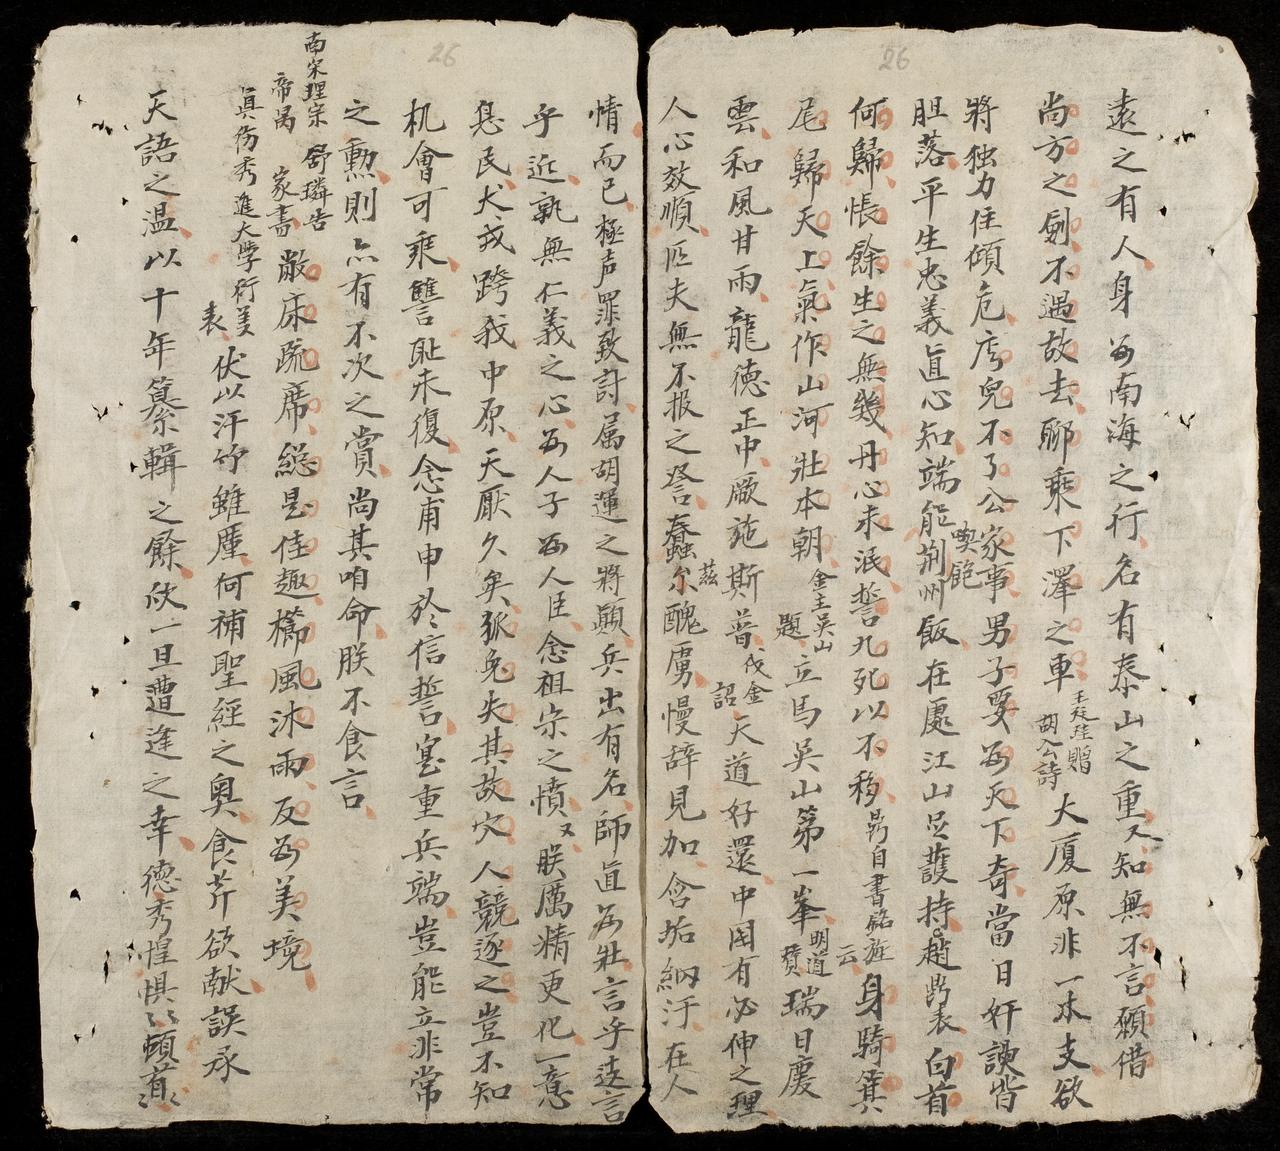 26
遠之有人身為南海之行名有泰山之重又知無不言願借
尚方之劍不遇故去聊乘下澤之車 王廷珪贈胡公詩 大厦原非一木支欲
將独力佳傾危痴兒不了公家事男子要為天下奇當日奸諛皆
胆落平生忠義眞心知端能喫飽荆州飯在處江山足護持 趙鼎表 白首
何歸悵餘生之無幾丹心未泯誓九死以不移 鼎自書銘旌云 身騎箕
尾歸天上氣作山河壯本朝 金主吳山題 立馬吳山第一峯 明道贊 瑞日慶
雲和風甘雨龍德正中厥施斯普 伐金詔 天道好還中国有必伸之理
人心效順匹夫無不报之咎蠢茲尔醜虜慢辞見加含垢納汙在人
26
情而已極声罪致討属胡運之將顛兵出有名師直為壯言乎遠言
乎近孰無仁義之心為人子為人臣念祖宗之憤又朕厲精更化一意
息民犬戎跨我中原天厭久矣狐兔失其故穴人競逐之豈不知
机會可乘讐耻未復念甫申於信誓寔重兵端豈能立非常
之勲則亦有不次之賞尚其咱命朕不食言
南宋理宗帝昺 舒璘告家書 敝床疏席緫是佳趣櫛風沐雨反為美境
眞德秀進大學衍義表 伏以汗竹雖塵何補聖經之奥食芹欲献誤承
天語之温以十年纂輯之餘欣一旦遭逢之幸德秀惶惧〻〻頓首〻〻